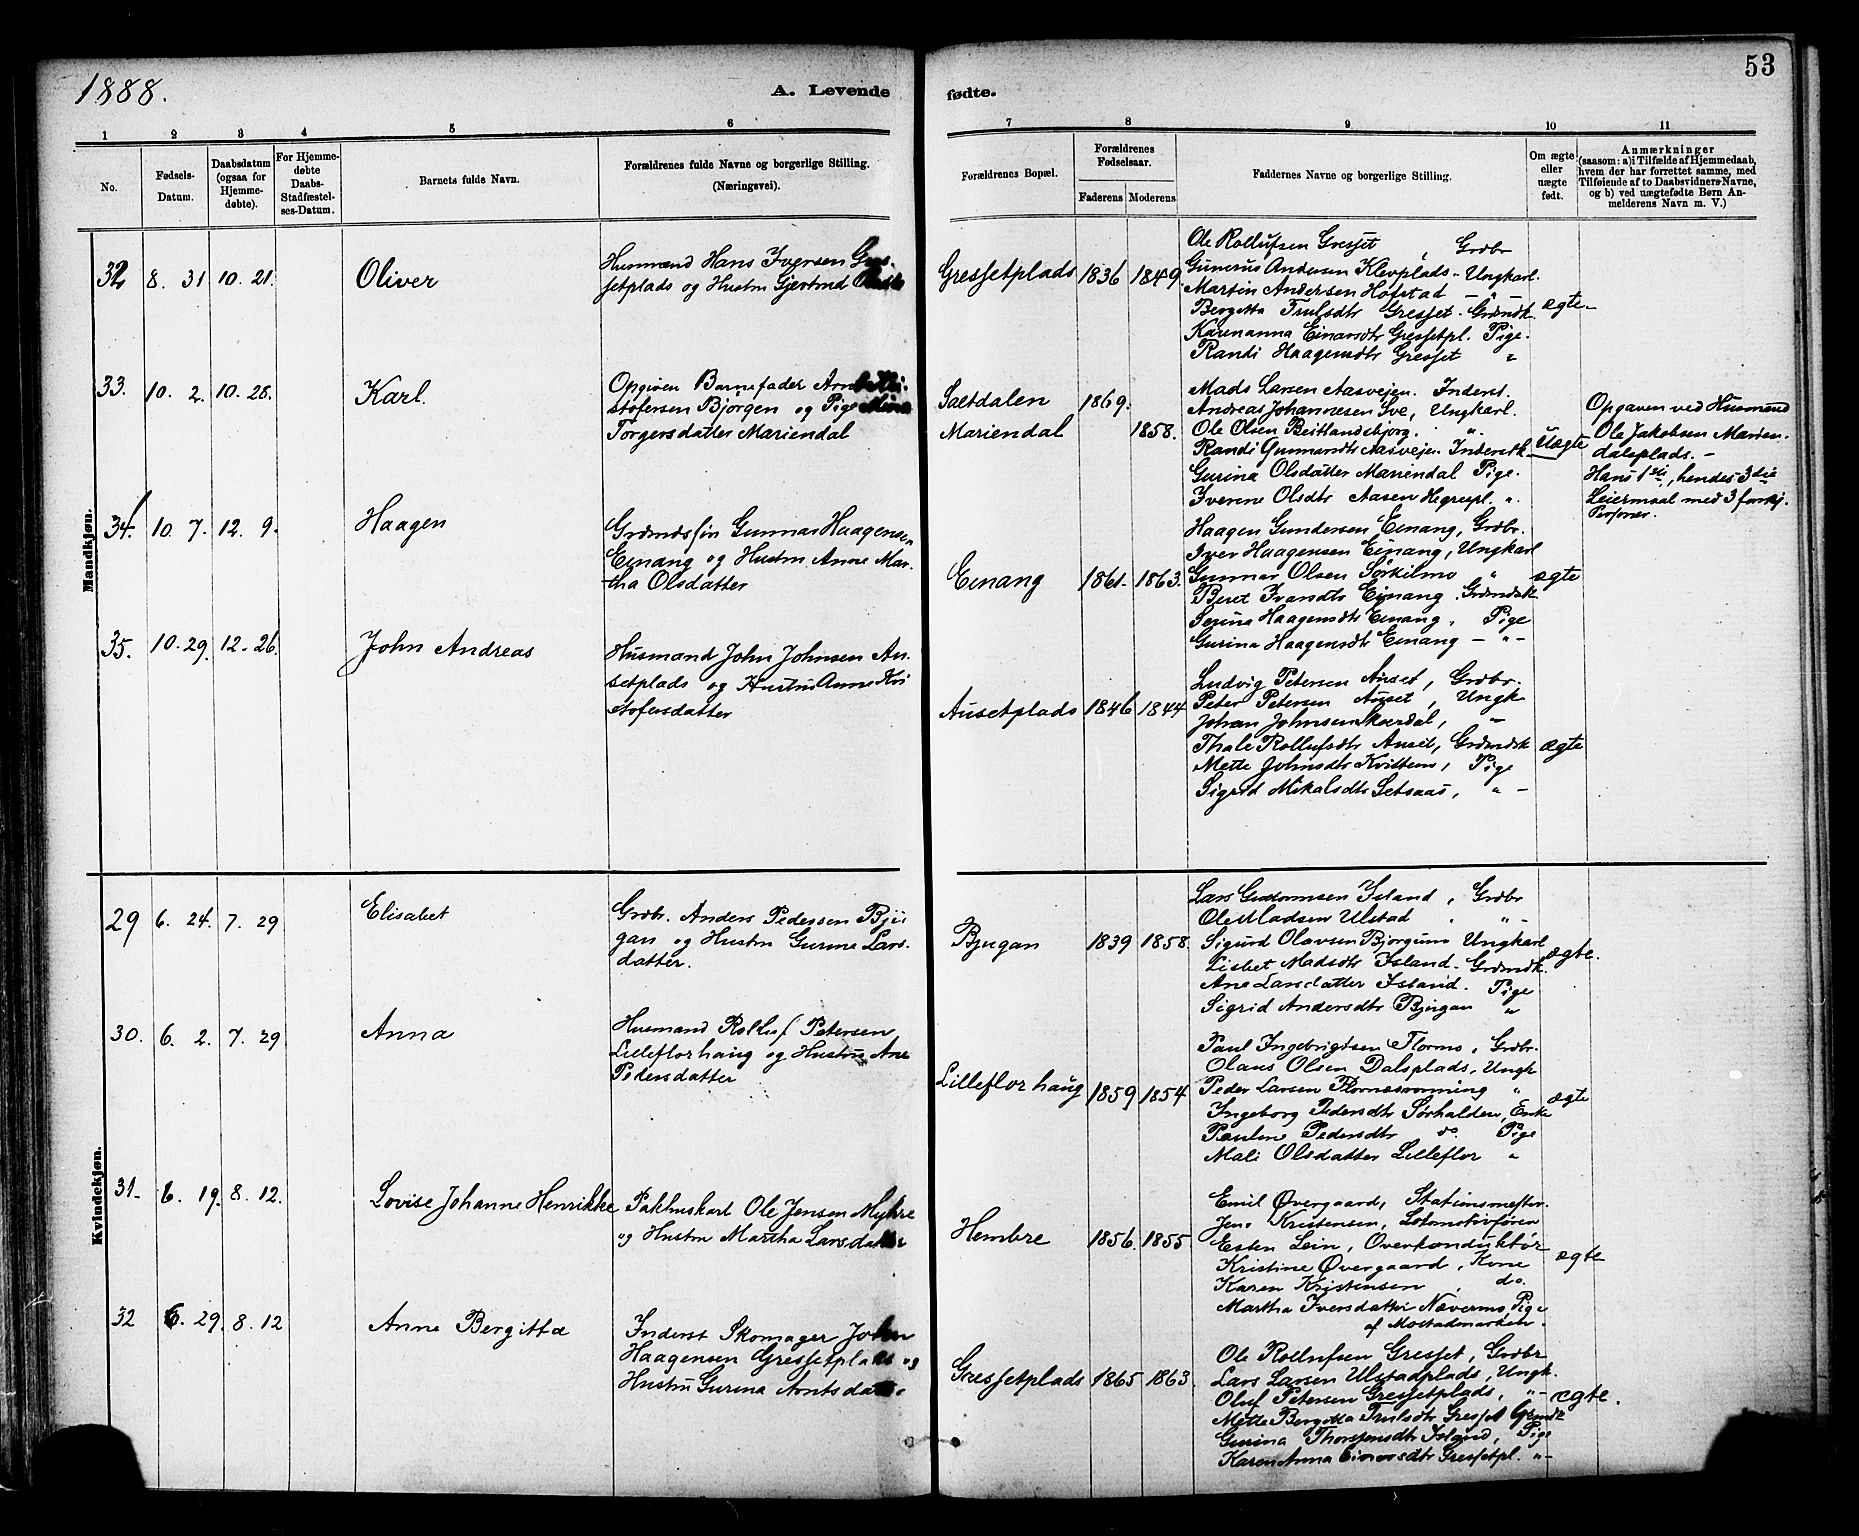 1888.
A. Levende
fødte.
53
1
2
3
4
5
6
7
8
9
10
11
No.
Fødsels-
Datum.
Daabsdatum
(ogsaa for
Hjemme-
døbte).
For Hjemme-
døbte
Daabs-
Stadfæstel-
ses-Datum.
Barnets fulde Navn.
Forældrenes fulde Navne og borgerlige Stilling.
(Næringsvei).
Forældrenes Bopæl.
Forældrenes
Fødselsaar.
Faderens
Moderens
Faddernes Navne og borgerlige Stilling.
Om ægte
eller
uægte
født.
Anmærkninger
(saasom: a) i Tilfælde af Hjemmedaab,
hvem der har forrettet samme, med
Tilføiende af to Daabsvidners-Navne,
og b) ved uægtefødte Børn An-
melderens Navn m. V.)
Mandkjøn.
32 8. 31 10. 21. Oliver
Husmand Hans Iversen Gres-
setplads og Hustru Gjertrud
Gressetplads 1836 1849.
Ole Rollufsen Gresset, Grdbr
Gunerus Andersen Klevplads - Ungkarl.
Martin Andersen Hofstad - " -
Bergetta Trulsdtr Gresset - Grdmdk.
Karenanna Einarsdtr Gressetpl. Pige.
Randi Haagensdtr Gresset "
ægte.
33. 10. 2. 10. 28. Karl.
Opgiven Barnefader Arnt Kri-
stofersen Bjørgen og Pige
Torgersdatter Mariendal
Saltdalen 1869.
Mariendal 1858.
Mads Larsen Aasvejen. Inderst.
Andreas Johannesen Sve, Ungkarl.
Ole Olsen Beitlandsbjorg. "
Randi Gunnarsdtr Aasvejen Inderstk.
Gurina Olsdatter Mariendal Pige.
Iverine Olsdtr Aasen Hegrespl. ".
Uægte
Opgaven ved Husmand
Ole Jakobsen Marien-
dalsplads. -
Hans 1ste, hendes 3die
Leiermaal med 3 forskj.
Personer.
34. 10. 7. 12. 9. Haagen
Grdmdssøn Gunnar Haagensen
Einang og Hustru Anne Mar-
tha Olsdatter
Einang 1861. 1863.
Haagen Gundersen Einang, Grdbr.
Iver Haagensen Einang, Ungkarl
Gunnar Olsen Sørkilmo "
Beret Ivarsdtr Einang. Grdmdsk
Serina Haagensdtr Einang, Pige
Gurina Haagensdtr Einang - " -
ægte
35. 10. 29. 12. 26. John Andreas
Husmand John Johnsen Au-
setplads og Hustru Anne Kri
stofersdatter
Ausetplads 1846 1844
Ludvig Petersen Auset, Grdbr.
Peter Petersen Auset, Ungk
Johan Johnsen Mærdal, "
Thale Rollufsdtr Auset, Grdmdsk
Mette Johnsdtr Kvittem, Pige
Sigrid Mikalsdtr Setsaas, " -
ægte
Kvindekjøn.
29 6. 24. 7. 29 Elisabet
Grdbr. Anders Pedersen Bju-
gan og Hustru Gurine Lars-
datter.
Bjugan 1839 1858.
Lars Guttormsen Island, Grdbr
Ole Madsen Ulstad " -
Sigurd Olavsen Bjorgum Ungkarl
Lisbet Madsdtr Island - Grdmdk.
Ane Larsdatter Island. Pige
Sigrid Andersdtr Bjugan "
ægte.
30. 6. 2. 7. 29 Anna
Husmand Rolluf Petersen
Lilleflorhaug og Hustru Ane
Pedersdatter
Lilleflorhaug 1859 1854
Paul Ingebrigtsen Flormo, Grdbr.
Olaus Olsen Dalsplads, Ungk
Peder Larsen Flornesrønning "
Ingeborg Pedersdtr Sørhalden, Enke
Pauline Pedersdtr do. Pige
Mali Olsdatter Lilleflor "
ægte
31. 6. 19. 8. 12. Lovise Johanne Henrikke
Pakhuskarl Ole Jensen Myhre
og Hustru Martha Larsdatter
Hembre 1856. 1855
Emil Øvergaard, Stationsmester.
Jens Kristensen, Lokomotivfører
Esten Lein, Overkonduktør
Kristine Øvergaard, Kone
Karen Kristensen, do.
Martha Iversdatter Nævermo, Pige
af Mostadmarken.
ægte
32 6. 29. 8. 12 Anne Bergitta
Inderst Skomager John
Haagensen Gressetplads og
Hustru Gurina Arntsdatter
Gressetplads 1865 1863.
Ole Rollufsen Gresset, Grdbr
Lars Larsen Ulstadplads, Ungk.
Oluf Petersen Gressetplads, " -
Mette Bergetta Trulsdtr Gresset Grmdk
Gurina Thorstensdtr Island, Pige
Karen Anna Einarsdtr Gressetpl. " -
ægte.